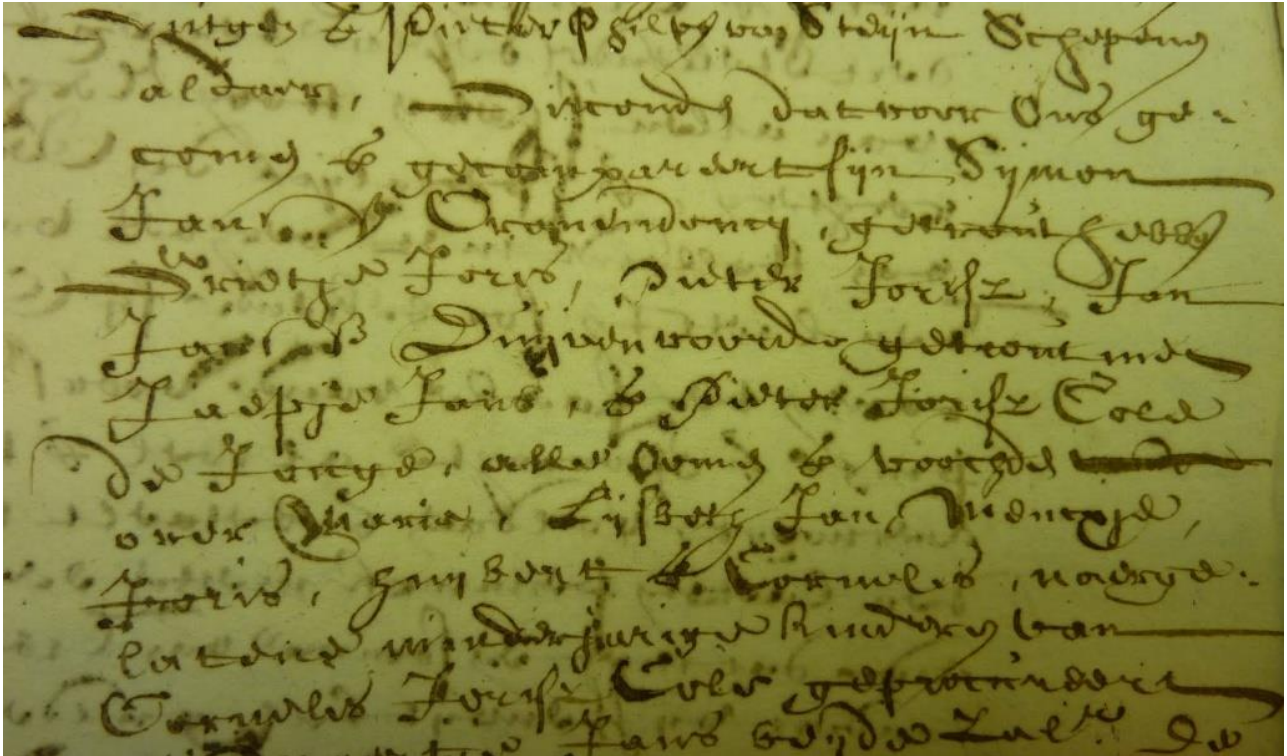 ende Pieter Philipsz van Steijn Schepens
aldaer, Oirconden dat voor Ons ge-
comen ende gecompareert sijn Sijmon
Jans getrout hebben
Grietge Joris, Pieter Jorisz, Jan
Jans Duijvenvoorde getrout met
Jaepje Jans, ende Pieter Jorisz Cole
de Jonge, alle Oomen ende voochden
over Maria, Lijsbeth Jan, Mencpje,
Joris, Huijbert & Cornelis, naerge-
latene minderjarige kinderen van
Cornelis Jorisz Cole geprocureert
Jans beijde Zalr. De